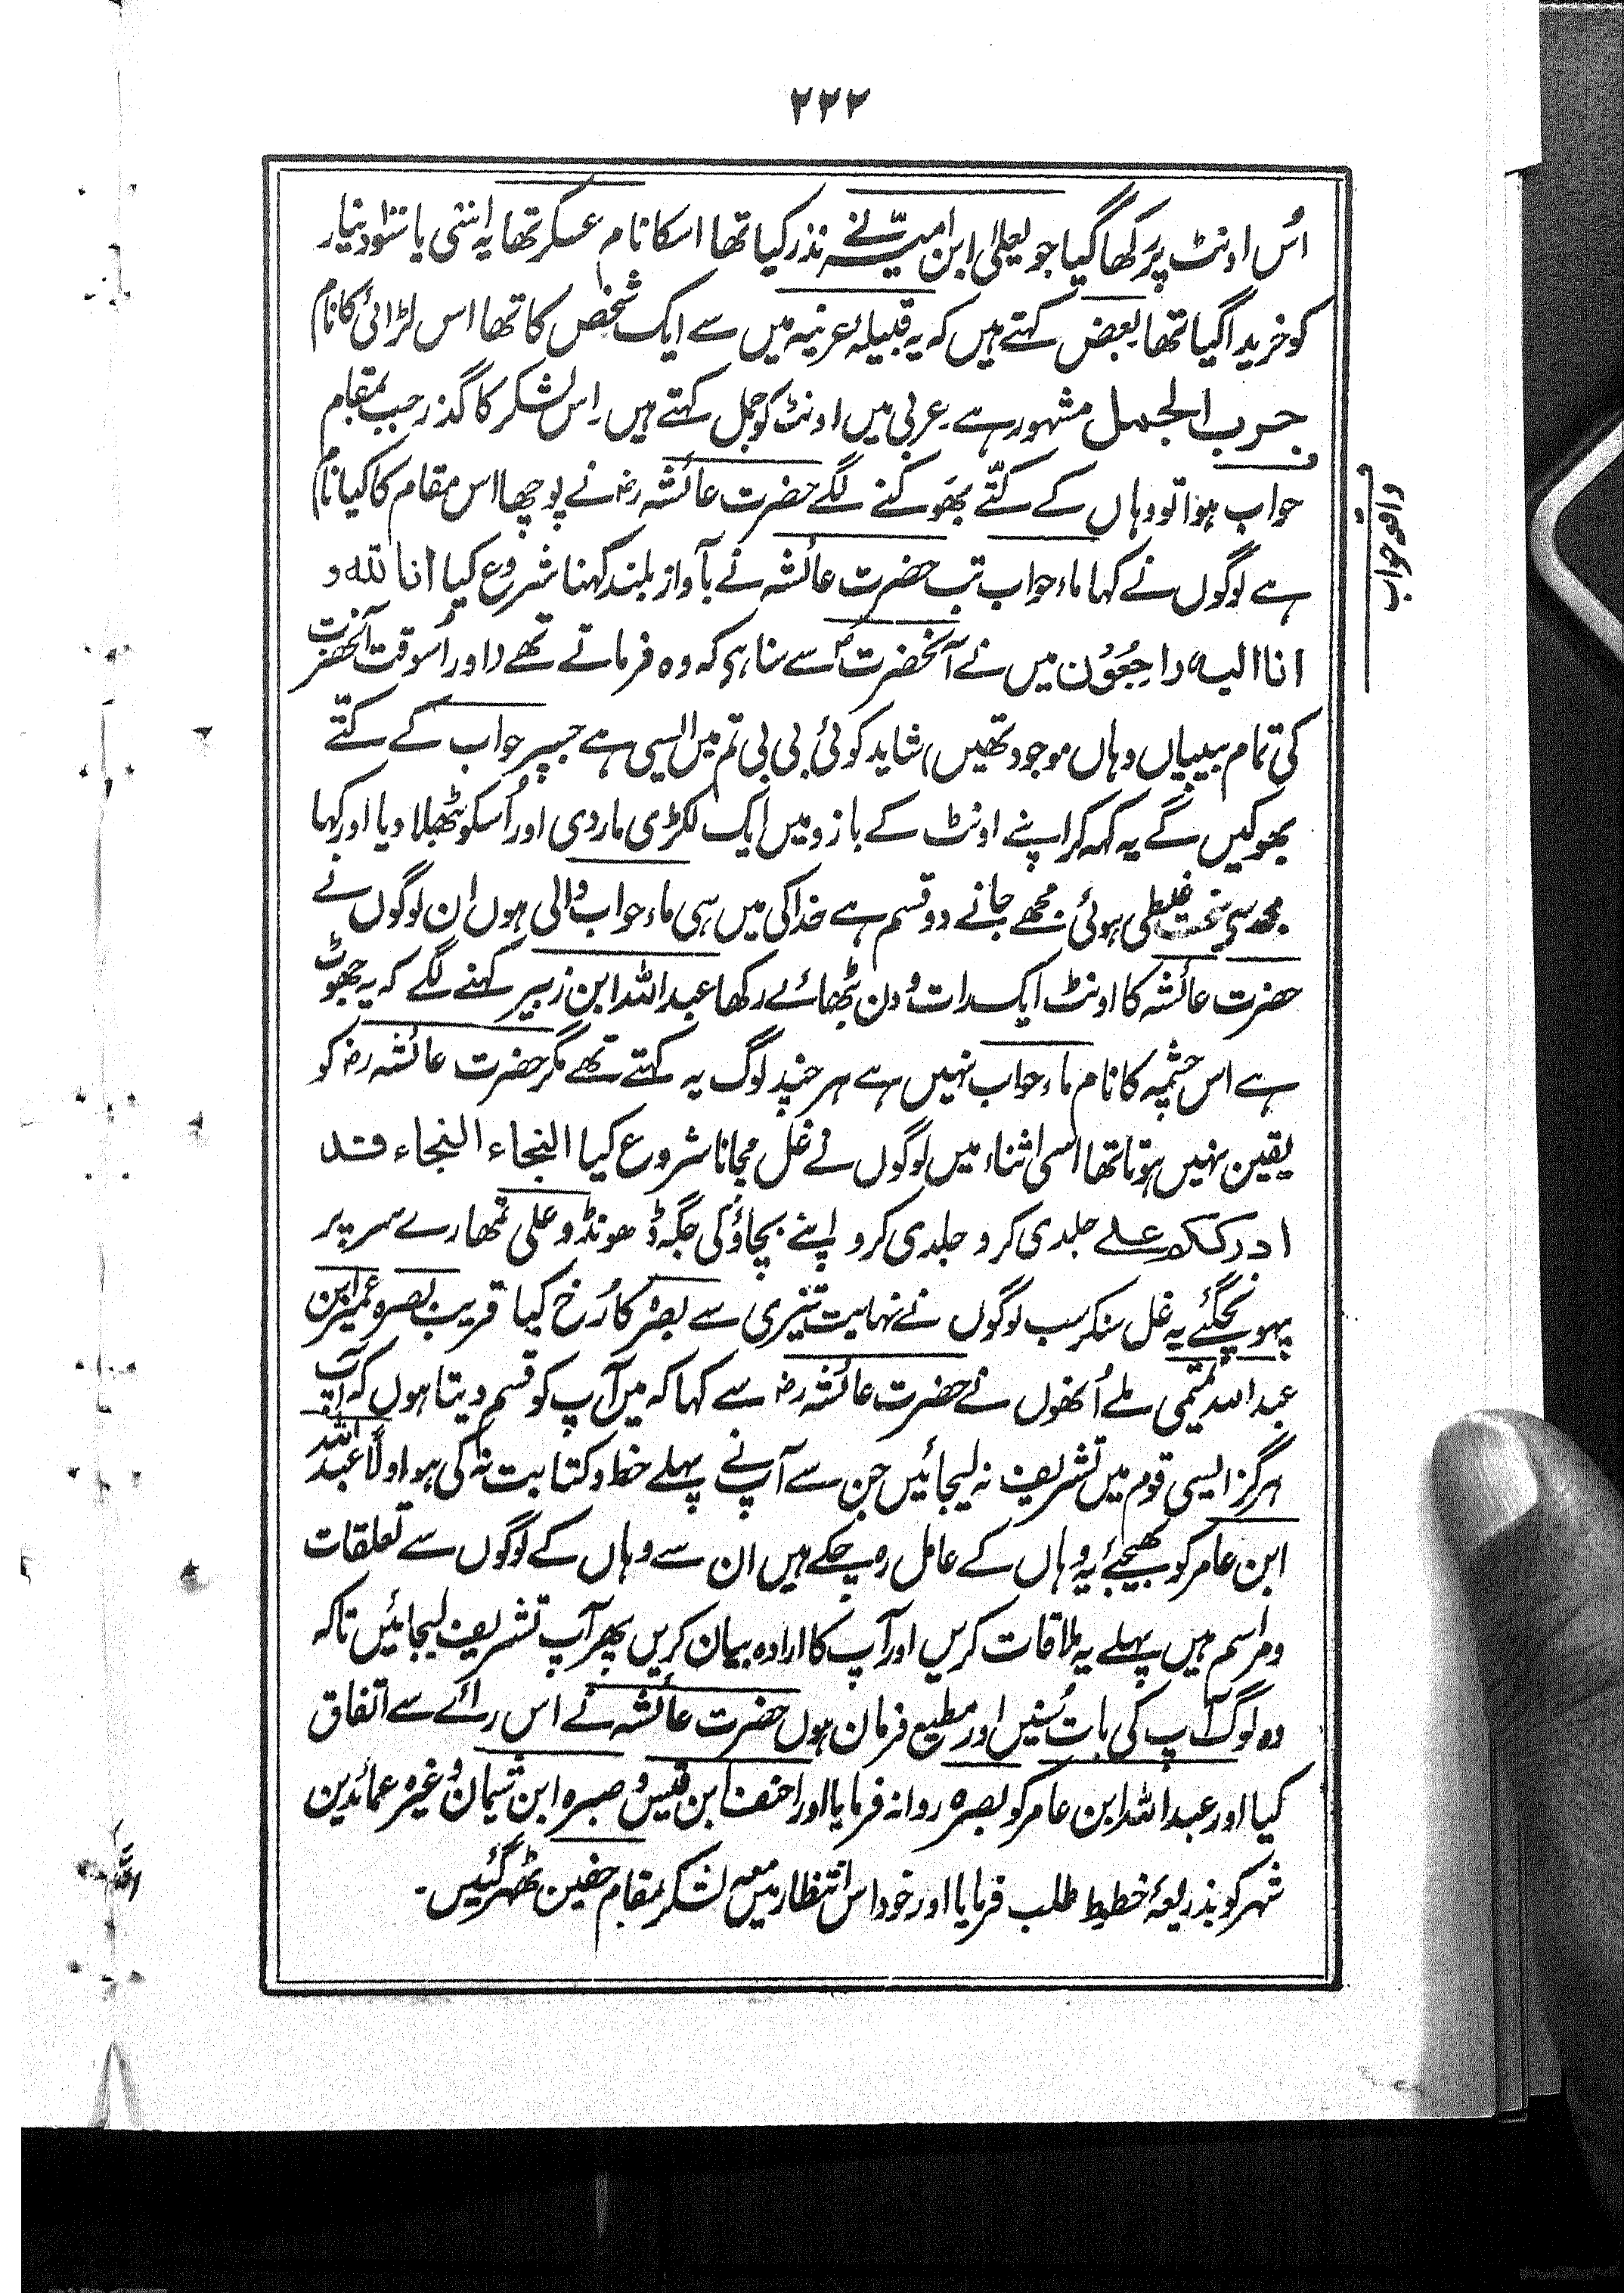 ۲۲۲
اُس اونٹ پر رکھا گیا جو یعلیٰ ابن امیّہ نے نذر کیا تھا اسکا نام عسکر تھا یہ اسّی یا سَو دینار
کو خریدا گیا تھا بعض کہتے ہیں کہ یہ قبیلۂ عرنیہ میں سے ایک شخص کا تھا اس لڑائی کا نام
حرب الجمل مشہور ہے عربی میں اونٹ کو جمل کہتے ہیں اِس لشکر کا گذر جب بمقام
حواب ہوا تو وہاں کے کتّے بھَوکنے لگے حضرت عائشہ رضہ نے پوچھا اس مقام کا کیا نام
ہے لوگوں نے کہا ماء حواب تب حضرت عائشہ نے بآواز بلند کہنا شروع کیا انا للہ و
انا الیہ راجِعُوُن میں نے آنحضرتؐ سے سنا ہی کہ وہ فرماتے تھے (اور اُسوقت آنحضرت
کی تمام بیبیاں وہاں موجود تھیں) شاید کوئی بی بی تم میں ایسی ہے جسپر حواب کے کتّے
بھوکیں گے یہ کہہ کر اپنے اونٹ کے بازو میں ایک لکڑی ماردی اور اُسکو بٹھلا دیا اور کہا
مجھ سی سخت غلطی ہوئی مجھے جانے دو قسم ہے خدا کی میں ہی ماء حواب والی ہوں ان لوگوں نے
حضرت عائشہ کا اونٹ ایک رات و دن بٹھائے رکھا عبد اللہ ابن زبیر کہنے لگے کہ یہ جھوٹ
ہے اس چشمہ کا نام ماء حواب نہیں ہے ہر چند لوگ یہ کہتے تھے مگر حضرت عائشہ رضہ کو
یقین نہیں ہوتا تھا اسی اثناء میں لوگوں نے غل مچانا شروع کیا النجاء النجاء قد
ادرککم علے جلدی کرو جلدی کرو اپنے بچاؤ کی جگہ ڈھونڈو علی تمھارے سر پر
پہونچگئے یہ غل سنکر سب لوگوں نے نہایت تیزی سے بصرہ کا رُخ کیا قریب بصرہ عمیر ابن
عبد اللہ تمیمی ملے اُنھوں نے حضرت عائشہ رضہ سے کہا کہ میں آپ کو قسم دیتا ہوں کہ آپ
ہرگز ایسی قوم میں تشریف نہ لیجائیں جن سے آپ نے پہلے خط و کتابت نہ کی ہو اولًا عبد اللہ
ابن عامر کو بھیجئے یہ وہاں کے عامل رہ چکے ہیں ان سے وہاں کے لوگوں سے تعلقات
و مراسم ہیں پہلے یہ ملاقات کریں اور آپ کا ارادہ بیان کریں پھر آپ تشریف لیجائیں تاکہ
وہ لوگ آپ کی بات سُنیں اور مطیع فرمان ہوں حضرت عائشہ نے اس رائے سے اتفاق
کیا اور عبد اللہ ابن عامر کو بصرہ روانہ فرمایا اور احنف ابن قیس و صبرہ ابن شیمان وغیرہ عمائدین
شہر کو بذریعۂ خطوط طلب فرمایا اور خود اس انتظار میں معہ لشکر بمقام حفین ٹھہر گئیں۔
واقعہ حواب